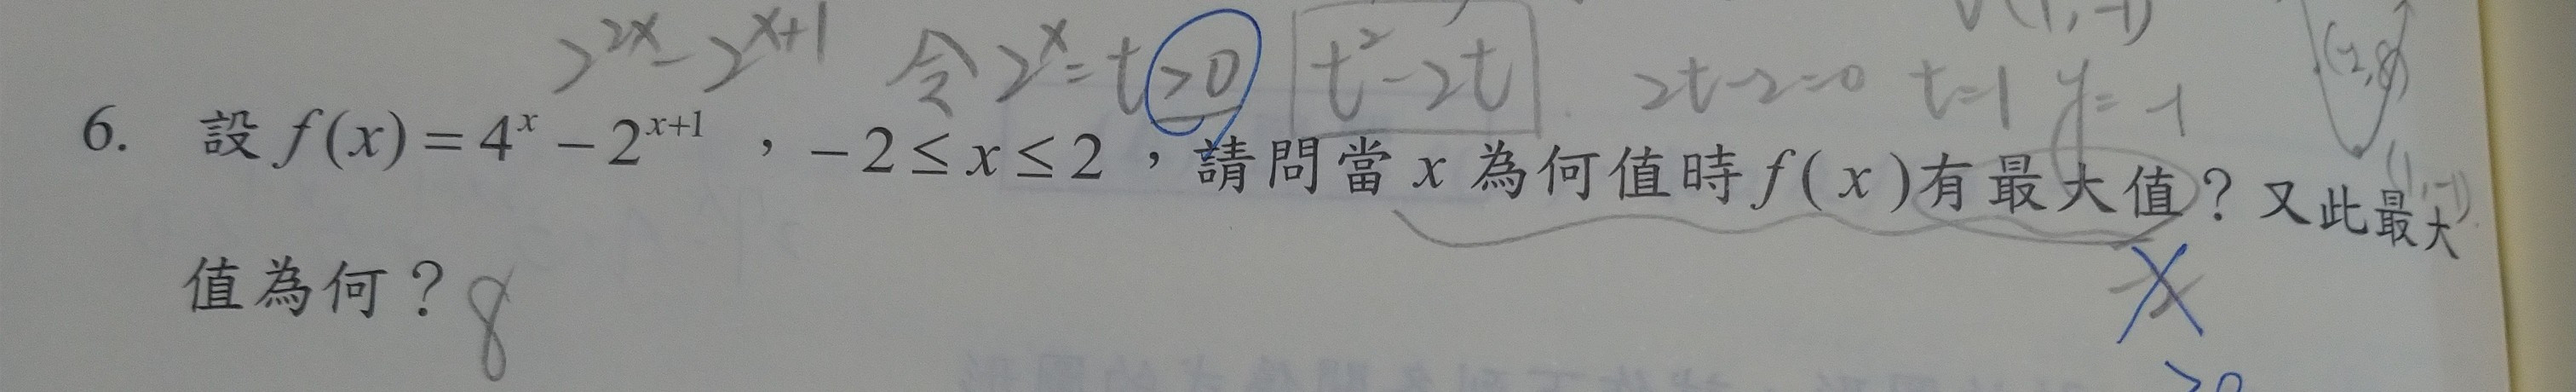 V(1,-1)
2^{2x} - 2^{x+1} 令 2^x = t > 0 t^2 - 2t 2t-2=0 t=1 y=-1 (-2,8)
6. 設 f(x) = 4^x - 2^{x+1} , -2 ≤ x ≤ 2 , 請問當 x 為何值時 f(x) 有最大值? 又此最大
(1,-1)
值為何? 8
-2
>0